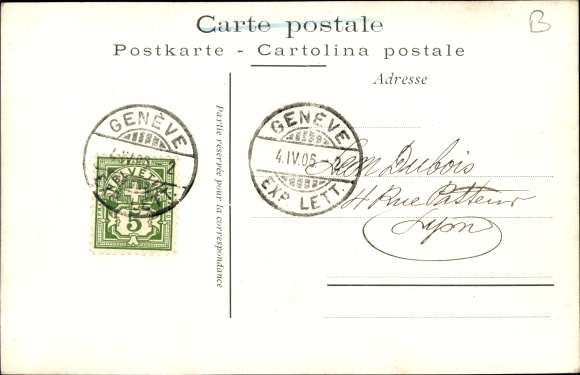 Carte postale
Postkarte - Cartolina postale
B
Adresse
Partie réservée pour la correspondance
GENÈVE
1
HELVETIA
5
GENÈVE
4.IV.06-
EXP. LETT.
Dubois
4 Rue Pasteur
Lyon